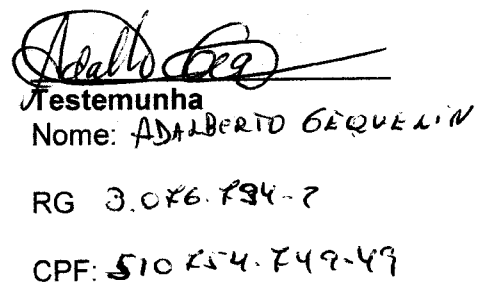 Testemunha
Nome: ADALBERTO GEQUELIN
RG 3.076.794-2
CPF: 510 754.749-49